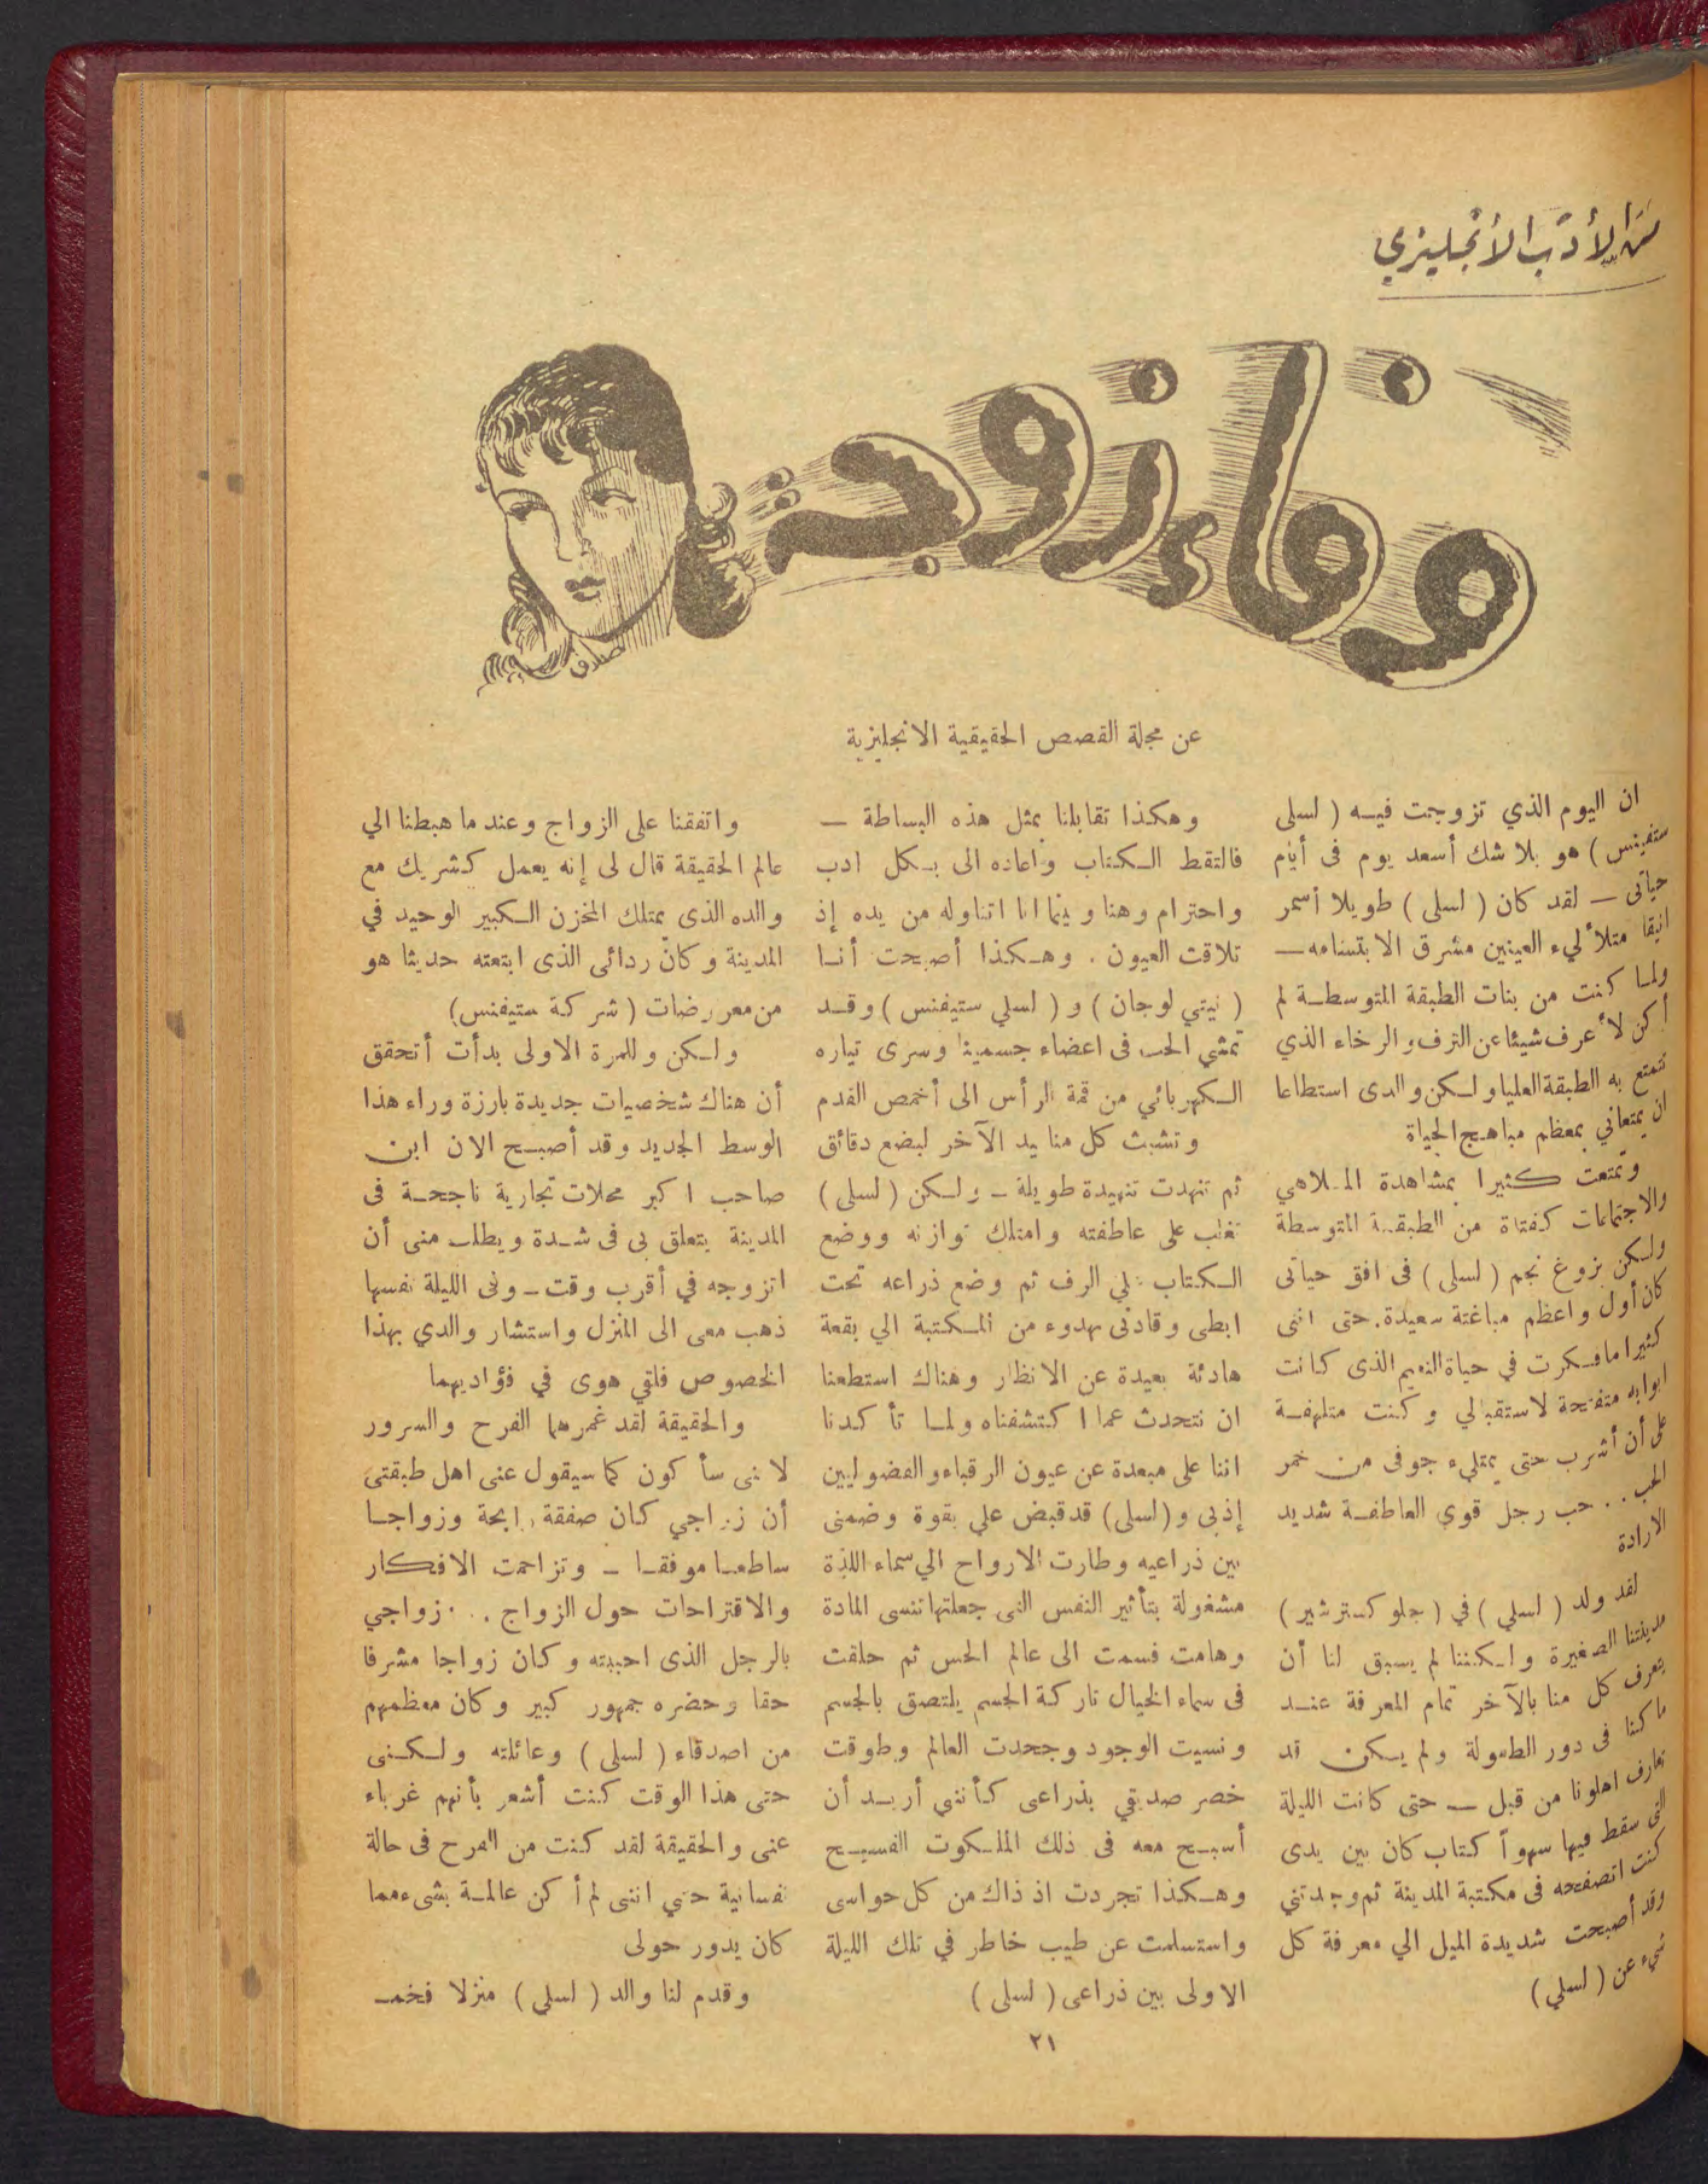 من الأدب الأنجليزي
وفاء زوجة
صادق
عن مجلة القصص الحقيقية الانجليزية
ان اليوم الذي تزوجت فيه ( لسلى
ستفينس ) هو بلا شك أسعد يوم فى أيام
حياتى — لقد كان ( لسلى ) طويلا أسمر
انيقا متلأليء العينين مشرق الابتسامه —
ولما كنت من بنات الطبقة المتوسطة لم
أكن لأعرف شيئا عن الترف والرخاء الذي
تتمتع به الطبقة العليا ولكن والدى استطاعا
ان يمتعاني بمعظم مباهج الحياة
وتمتعت كثيرا بمشاهدة الملاهي
والاجتماعات كفتاة من الطبقة المتوسطة
ولكن بزوغ نجم ( لسلى ) فى افق حياتى
كان أول واعظم مباغتة سعيدة. حتى اننى
كثيرا ما فكرت في حياة النعيم الذى كانت
ابوابه متفتحة لاستقبالي وكنت متلهفة
على أن أشرب حتى يمتليء جوفى من خمر
الحب . . حب رجل قوي العاطفة شديد
الارادة
لقد ولد ( لسلي ) في ( جلوكسترشير )
مدينتنا الصغيرة ولكننا لم يسبق لنا أن
يعرف كل منا بالآخر تمام المعرفة عند
ما كنا فى دور الطفولة ولم يكن قد
تعارف اهلونا من قبل — حتى كانت الليلة
التى سقط فيها سهواً كتاب كان بين يدى
كنت اتصفحه فى مكتبة المدينة ثم وجدتني
وقد أصبحت شديدة الميل الي معرفة كل
شيء عن ( لسلي )
وهكذا تقابلنا بمثل هذه البساطة —
فالتقط الكتاب واعاده الى بكل ادب
واحترام وهنا وبينما انا اتناوله من يده إذ
تلاقت العيون . وهكذا أصبحت أنا
( نيتي لوجان ) و ( لسلي ستيفنس ) وقد
تمشي الحب فى اعضاء جسمينا وسرى تياره
الكهربائي من قمة الرأس الى أخمص القدم
وتشبث كل منا يد الآخر لبضع دقائق
ثم تنهدت تنهيدة طويلة - ولكن ( لسلى )
تغلب على عاطفته وامتلك توازنه ووضع
الكتاب على الرف ثم وضع ذراعه تحت
ابطى وقادنى بهدوء من المكتبة الي بقعة
هادئة بعيدة عن الانظار وهناك استطعنا
ان نتحدث عما اكتشفناه ولما تأكدنا
اننا على مبعدة عن عيون الرقباء والفضوليين
إذبى و (لسلى) قد قبض علي بقوة وضمنى
بين ذراعيه وطارت الارواح الي سماء اللذة
مشغولة بتأثير النفس التى جعلتها تنسى المادة
وهامت فسمت الى عالم الحس ثم حلقت
فى سماء الخيال تاركة الجسم يلتصق بالجسم
ونسيت الوجود وجحدت العالم وطوقت
خصر صديقي بذراعى كأننى أريد أن
أسبح معه فى ذلك الملكوت الفسيح
وهكذا تجردت اذ ذاك من كل حواسى
واستسلمت عن طيب خاطر في تلك الليلة
الاولى بين ذراعى ( لسلى )
واتفقنا على الزواج وعند ما هبطنا الي
عالم الحقيقة قال لى إنه يعمل كشريك مع
والده الذى يمتلك المخزن الكبير الوحيد في
المدينة وكان ردائى الذى ابتعته حديثا هو
من معروضات ( شركة ستيفنس )
ولكن وللمرة الاولى بدأت أتحقق
أن هناك شخصيات جديدة بارزة وراء هذا
الوسط الجديد وقد أصبح الان ابن
صاحب اكبر محلات تجارية ناجحة فى
المدينة يتعلق بى فى شدة ويطلب منى أن
اتزوجه في أقرب وقت - وفى الليلة نفسها
ذهب معى الى المنزل واستشار والدي بهذا
الخصوص فلقي هوى في فؤاديهما
والحقيقة لقد غمرهما الفرح والسرور
لانى سأكون كما سيقول عنى اهل طبقتى
أن زواجي كان صفقة رابحة وزواجا
ساطعا موفقا - وتزاحمت الافكار
والاقتراحات حول الزواج . . زواجي
بالرجل الذى احببته وكان زواجا مشرقا
حقا وحضره جمهور كبير وكان معظمهم
من اصدقاء ( لسلى ) وعائلته ولكنى
حتى هذا الوقت كنت أشعر بأنهم غرباء
عنى والحقيقة لقد كنت من الفرح فى حالة
نفسانية حتي اننى لم أكن عالمة بشىء مما
كان يدور حولى
وقدم لنا والد ( لسلي ) منزلا فخمـ
٢١